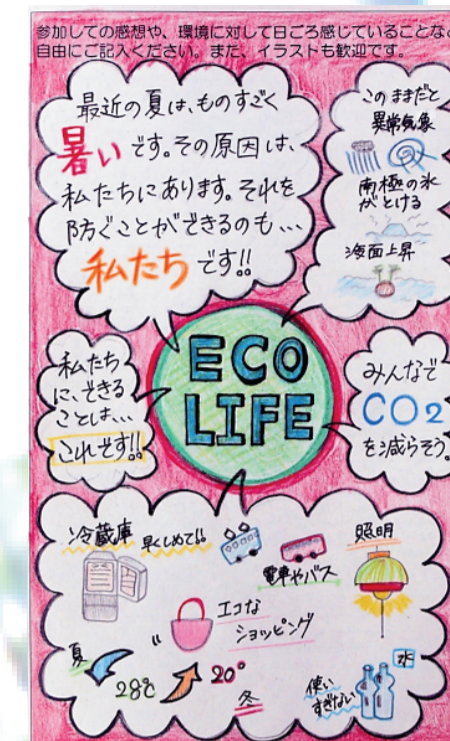 参加しての感想や、環境に対して日ごろ感じていることなど
自由にご記入ください。また、イラストも歓迎です。
最近の夏は、ものすごく
暑いです。その原因は、
私たちにあります。それを
防ぐことができるのも…
私たちです!!
このままだと
異常気象
南極の氷
がとける
海面上昇
ECO
LIFE
私たち
に、できる
ことは、…
これです!!
みんなで
CO2
を減らそう。
冷蔵庫 早くしめて!!
電車やバス
照明
エコな
ショッピング
夏
28℃
20°
冬
使い
すぎない
水